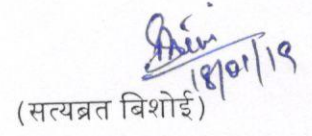 18/01/19
(सत्यब्रत बिशोई)